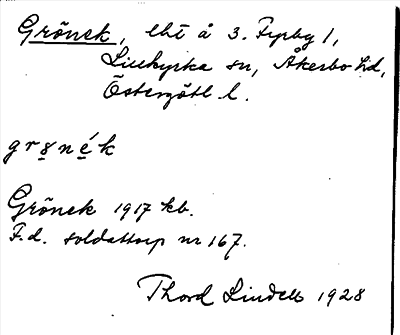 Grönek, lht å 3. Fyrby 1,
Lillkyrka sn, Åkerbo hd,
Östergötl l.
grɤnék
Grönek 1917 kb.
F.d. soldattorp nr 167.
Thord Lindell 1928